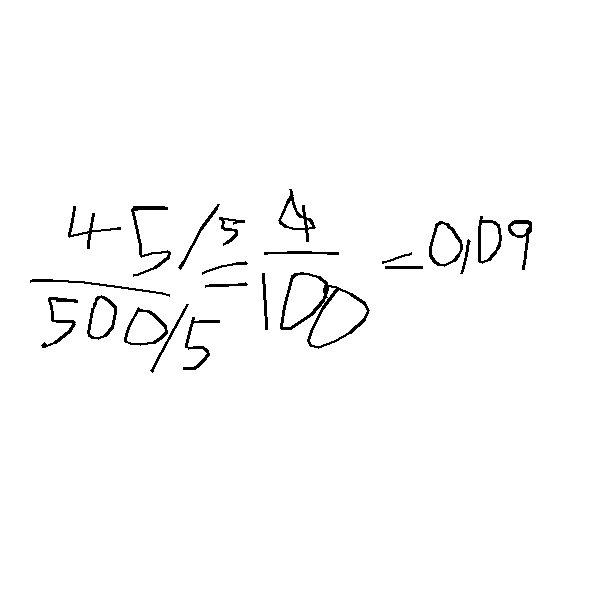 45/5 / 500/5 = 9/100 = 0,09